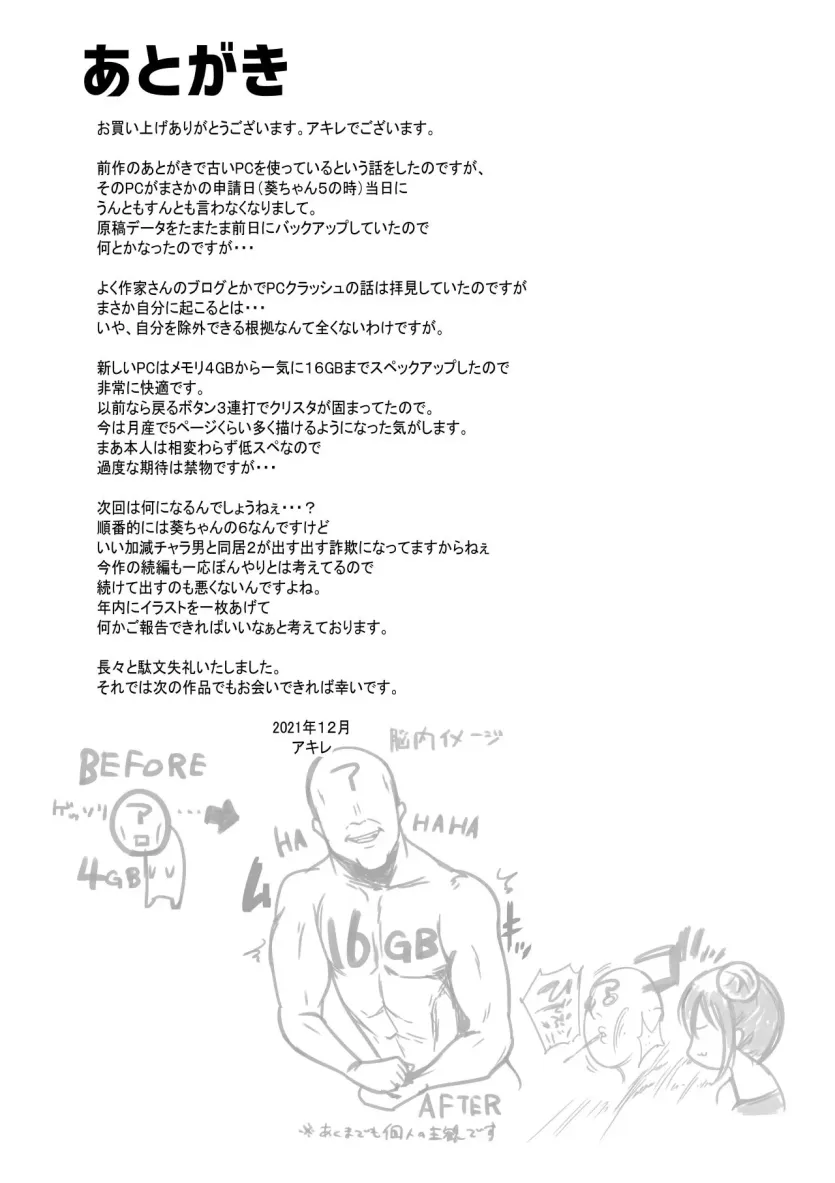 あとがき
お買い上げありがとうございます。アキレでございます。
前作のあとがきで古いPCを使っているという話をしたのですが、
そのPCがまさかの申請日（葵ちゃん５の時）当日に
うんともすんとも言わなくなりまして。
原稿データをたまたま前日にバックアップしていたので
何とかなったのですが・・・
よく作家さんのブログとかでPCクラッシュの話は拝見していたのですが
まさか自分に起こるとは・・・
いや、自分を除外できる根拠なんて全くないわけですが。
新しいPCはメモリ４GBから一気に１６GBまでスペックアップしたので
非常に快適です。
以前なら戻るボタン３連打でクリスタが固まってたので。
今は月産で5ページくらい多く描けるようになった気がします。
まあ本人は相変わらず低スペなので
過度な期待は禁物ですが・・・
次回は何になるんでしょうねぇ・・・？
順番的には葵ちゃんの６なんですけど
いい加減チャラ男と同居２が出す出す詐欺になってますからねぇ
今作の続編も一応ぼんやりとは考えてるので
続けて出すのも悪くないんですよね。
年内にイラストを一枚あげて
何かご報告できればいいなぁと考えております。
長々と駄文失礼いたしました。
それでは次の作品でもお会いできれば幸いです。
2021年１２月
アキレ
脳内イメージ
BEFORE
ゲッソリ
ア
ロ
・・・
4GB
ア
HA
HAHA
ム
キッ
16GB
AFTER
※あくまでも個人の主観です